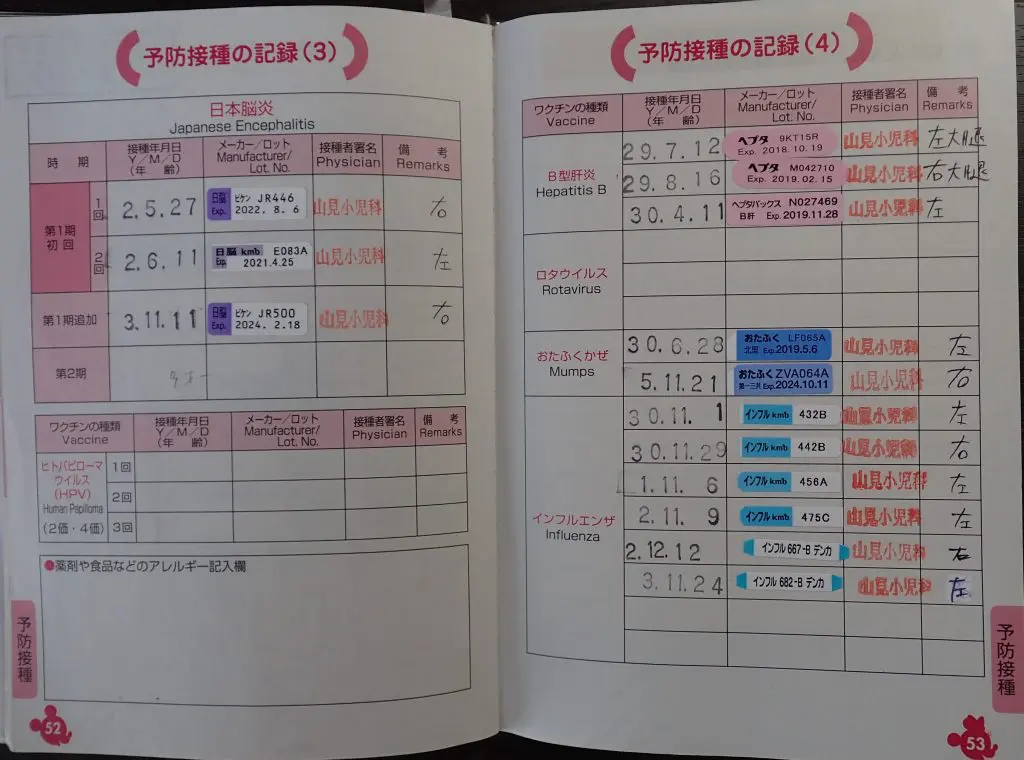 予防接種の記録(3)
日本脳炎
Japanese Encephalitis
時 期
接種年月日
Y/M/D
(年 齢)
メーカー/ロット
Manufacturer/
Lot. No.
接種者署名
Physician
備 考
Remarks
第1期
初回
1回
2.5.27
日脳 ビケン JR446
Exp. 2022. 8. 6
山見小児科
右
2回
2.6.11
日脳 kmb E083A
Exp. 2021.4.25
山見小児科
左
第1期追加
3.11.11
日脳 ビケン JR500
Exp. 2024. 2.18
山見小児科
右
第2期
ワクチンの種類
Vaccine
接種年月日
Y/M/D
(年 齢)
メーカー/ロット
Manufacturer/
Lot. No.
接種者署名
Physician
備 考
Remarks
ヒトパピローマ
ウイルス
(HPV)
Human Papilloma
(2価・4価)
1回
2回
3回
●薬剤や食品などのアレルギー記入欄
予防接種
52
予防接種の記録(4)
ワクチンの種類
Vaccine
接種年月日
Y/M/D
(年 齢)
メーカー/ロット
Manufacturer/
Lot. No.
接種者署名
Physician
備 考
Remarks
B型肝炎
Hepatitis B
29.7.12
ヘプタ 9KT15R
Exp. 2018.10.19
山見小児科
左大腿
29.8.16
ヘプタ M042710
Exp. 2019.02.15
山見小児科
右大腿
30.4.11
ヘプタバックス N027469
B肝 Exp.2019.11.28
山見小児科
左
ロタウイルス
Rotavirus
おたふくかぜ
Mumps
30.6.28
おたふく LF065A
北里 Exp.2019.5.6
山見小児科
左
5.11.21
おたふく ZVA064A
第一三共 Exp.2024.10.11
山見小児科
右
インフルエンザ
Influenza
30.11. 1
インフル kmb 432B
山見小児科
左
30.11.29
インフル kmb 442B
山見小児科
右
1.11. 6
インフル kmb 456A
山見小児科
左
2.11. 9
インフル kmb 475C
山見小児科
左
2.12.12
インフル 667-B デンカ
山見小児科
右
3.11.24
インフル 682-B デンカ
山見小児科
左
予防接種
53